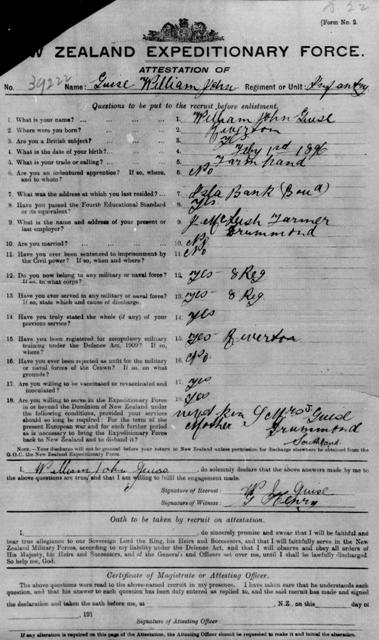 (Form No. 2.
NEW ZEALAND EXPEDITIONARY FORCE.
ATTESTATION OF
No. 39222 Name: Guise William John Regiment or Unit: Infantry
Questions to be put to the recruit before enlistment.
1. What is your name? ... 1. William John Guise
2. Where were you born? 2. Riverton
3. Are you a British subject? 3.
4. What is the date of your birth? 4. Feby 1st 1896
5. What is your trade or calling? 5. Farm hand
6. Are you an indentured apprentice? If so, where, and to whom? 6. No
7. What was the address at which you last resided? 7. Isla Bank
8. Have you passed the Fourth Educational Standard or its equivalent? 8. Yes
9. What is the name and address of your present or last employer? 9. Farmer Drummond
10. Are you married? 10. No
11. Have you ever been sentenced to imprisonment by the Civil power? If so, when and where? 11. No
12. Do you now belong to any military or naval force? If so, to what corps? 12. Yes 8 Reg
13. Have you ever served in any military or naval force? If so, state which and cause of discharge. 13. Yes 8 Reg
14. Have you truly stated the whole (if any) of your previous service? 14. Yes
15. Have you been registered for compulsory military training under the Defence Act, 1909? If so, where? 15. Yes Riverton
16. Have you ever been rejected as unfit for the military or naval forces of the Crown? If so, on what grounds? 16. No
17. Are you willing to be vaccinated or revaccinated and inoculated? 17. Yes
18. Are you willing to serve in the Expeditionary Force in or beyond the Dominion of New Zealand under the following conditions, provided your services should so long be required: For the term of the present European war and for such further period as is necessary to bring the Expeditionary Force back to New Zealand and to disband it? 18. Yes
next kin Mother Mrs Guise Drummond Southland
NOTE.—Your discharge will not be granted before your return to New Zealand unless permission for discharge elsewhere be obtained from the G.O.C. the New Zealand Expeditionary Force.
I, William John Guise, do solemnly declare that the above answers made by me to the above questions are true, and that I am willing to fulfil the engagement made.
Signature of Recruit: W J Guise
Signature of Witness: Henry
Oath to be taken by recruit on attestation.
I, , do sincerely promise and swear that I will be faithful and bear true allegiance to our Sovereign Lord the King, his Heirs and Successors, and that I will faithfully serve in the New Zealand Military Forces, according to my liability under the Defence Act, and that I will observe and obey all orders of His Majesty, his Heirs and Successors, and of the Generals and Officers set over me, until I shall be lawfully discharged. So help me, God.
Certificate of Magistrate or Attesting Officer.
The above questions were read to the above-named recruit in my presence. I have taken care that he understands each question, and that his answer to each question has been duly entered as replied to, and the said recruit has made and signed the declaration and taken the oath before me, at , N.Z., on this day of
, 191
Signature of Attesting Officer
If any alteration is required on this page of the Attestation, the Attesting Officer should be requested to make it and initial the alteration.